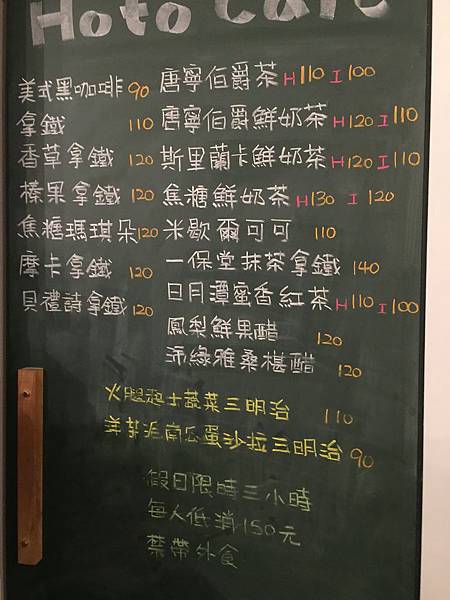 Hoto Cafe
美式黑咖啡 90
拿鐵 110
香草拿鐵 120
榛果拿鐵 120
焦糖瑪琪朵 120
摩卡拿鐵 120
貝禮詩拿鐵 120
唐寧伯爵茶 H110 I100
唐寧伯爵鮮奶茶 H120 I110
斯里蘭卡鮮奶茶 H120 I110
焦糖鮮奶茶 H130 I120
米歇爾可可 110
一保堂抹茶拿鐵 140
日月潭蜜香紅茶 H110 I100
鳳梨鮮果醋 120
沛綠雅桑椹醋 120
火腿起士蔬菜三明治 110
洋芋泥南瓜蛋沙拉三明治 90
假日限時三小時
每人低消150元
禁帶外食